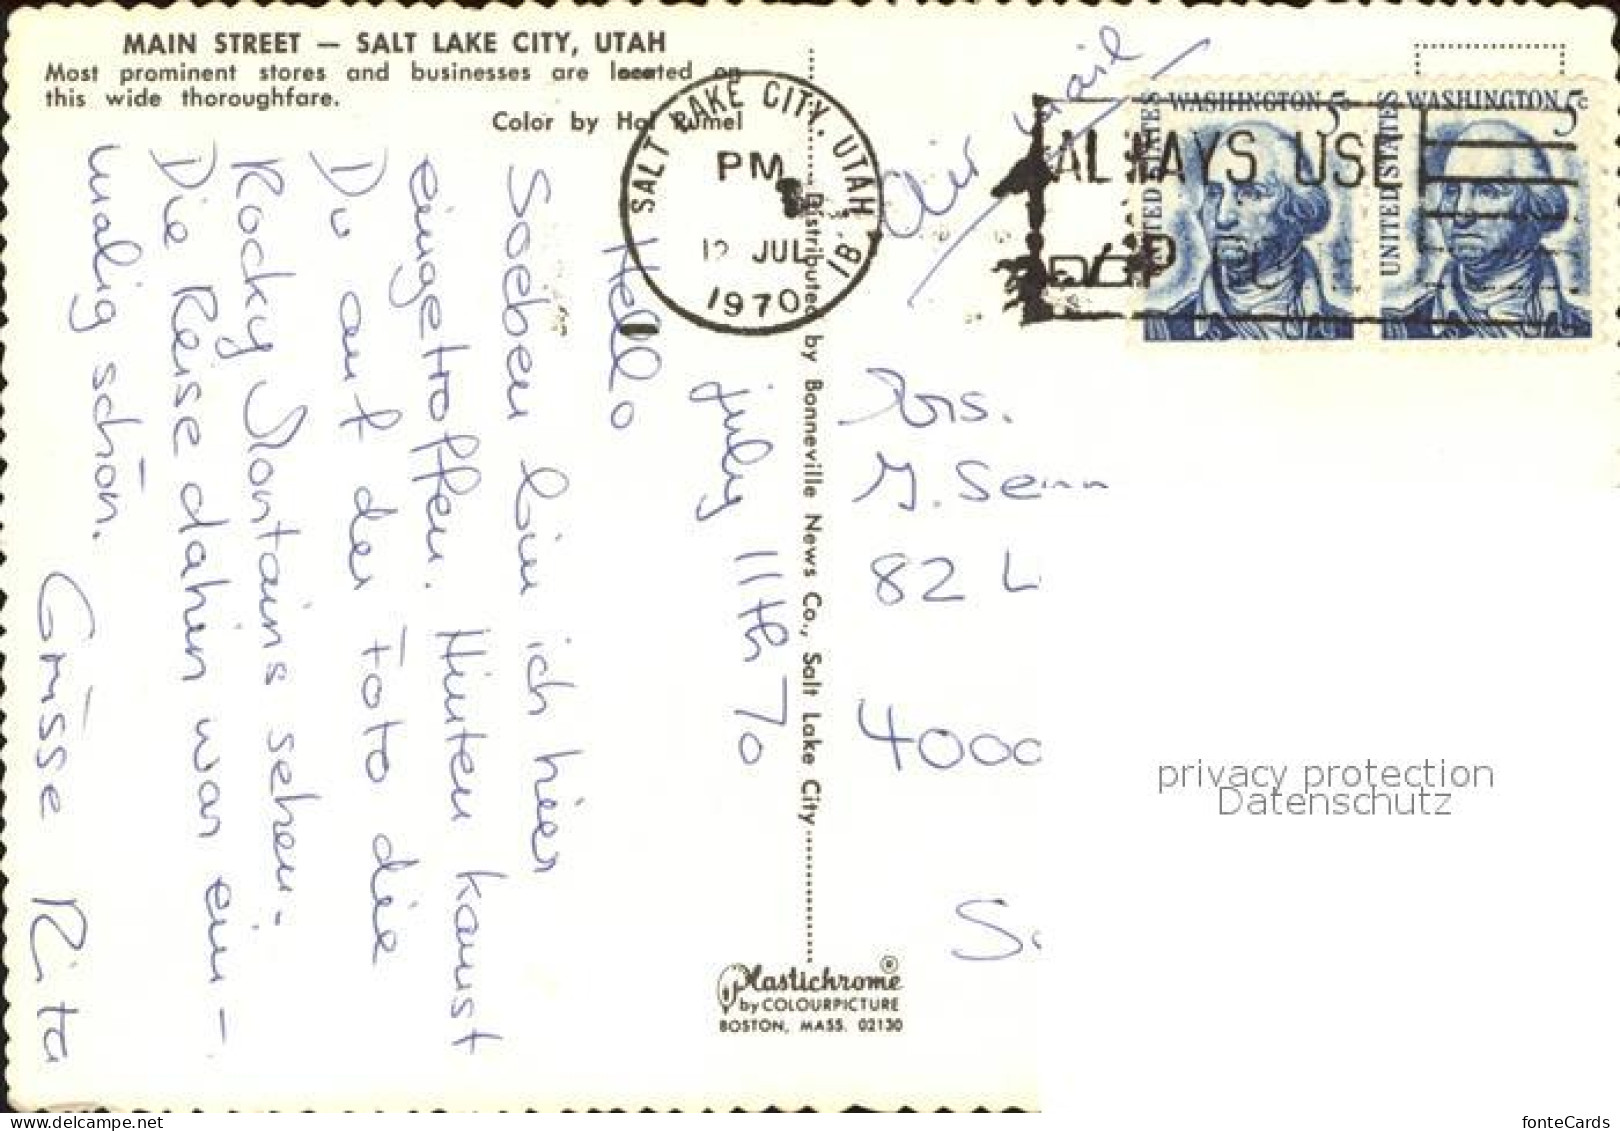 MAIN STREET — SALT LAKE CITY, UTAH
Most prominent stores and businesses are located on
this wide thoroughfare.
Color by Hal Rumel
Hello
july 11th 70
Soeben bin ich hier
eingetroffen. Hinten kannst
Du auf der Foto die
Rocky Montains sehen.
Die Reise dahin war ein-
malig schön.
Grüsse Rita
SALT LAKE CITY, UTAH
PM
12 JUL
1970
ALWAYS USE
ZIP CO
WASHINGTON 5c
UNITED STATES
WASHINGTON 5c
UNITED STATES
Air mail
Distributed by Bonneville News Co., Salt Lake City
Senn
82 L
4000
Plastichrome ®
by COLOURPICTURE
BOSTON, MASS. 02130
privacy protection
Datenschutz
www.delcampe.net
fonteCards